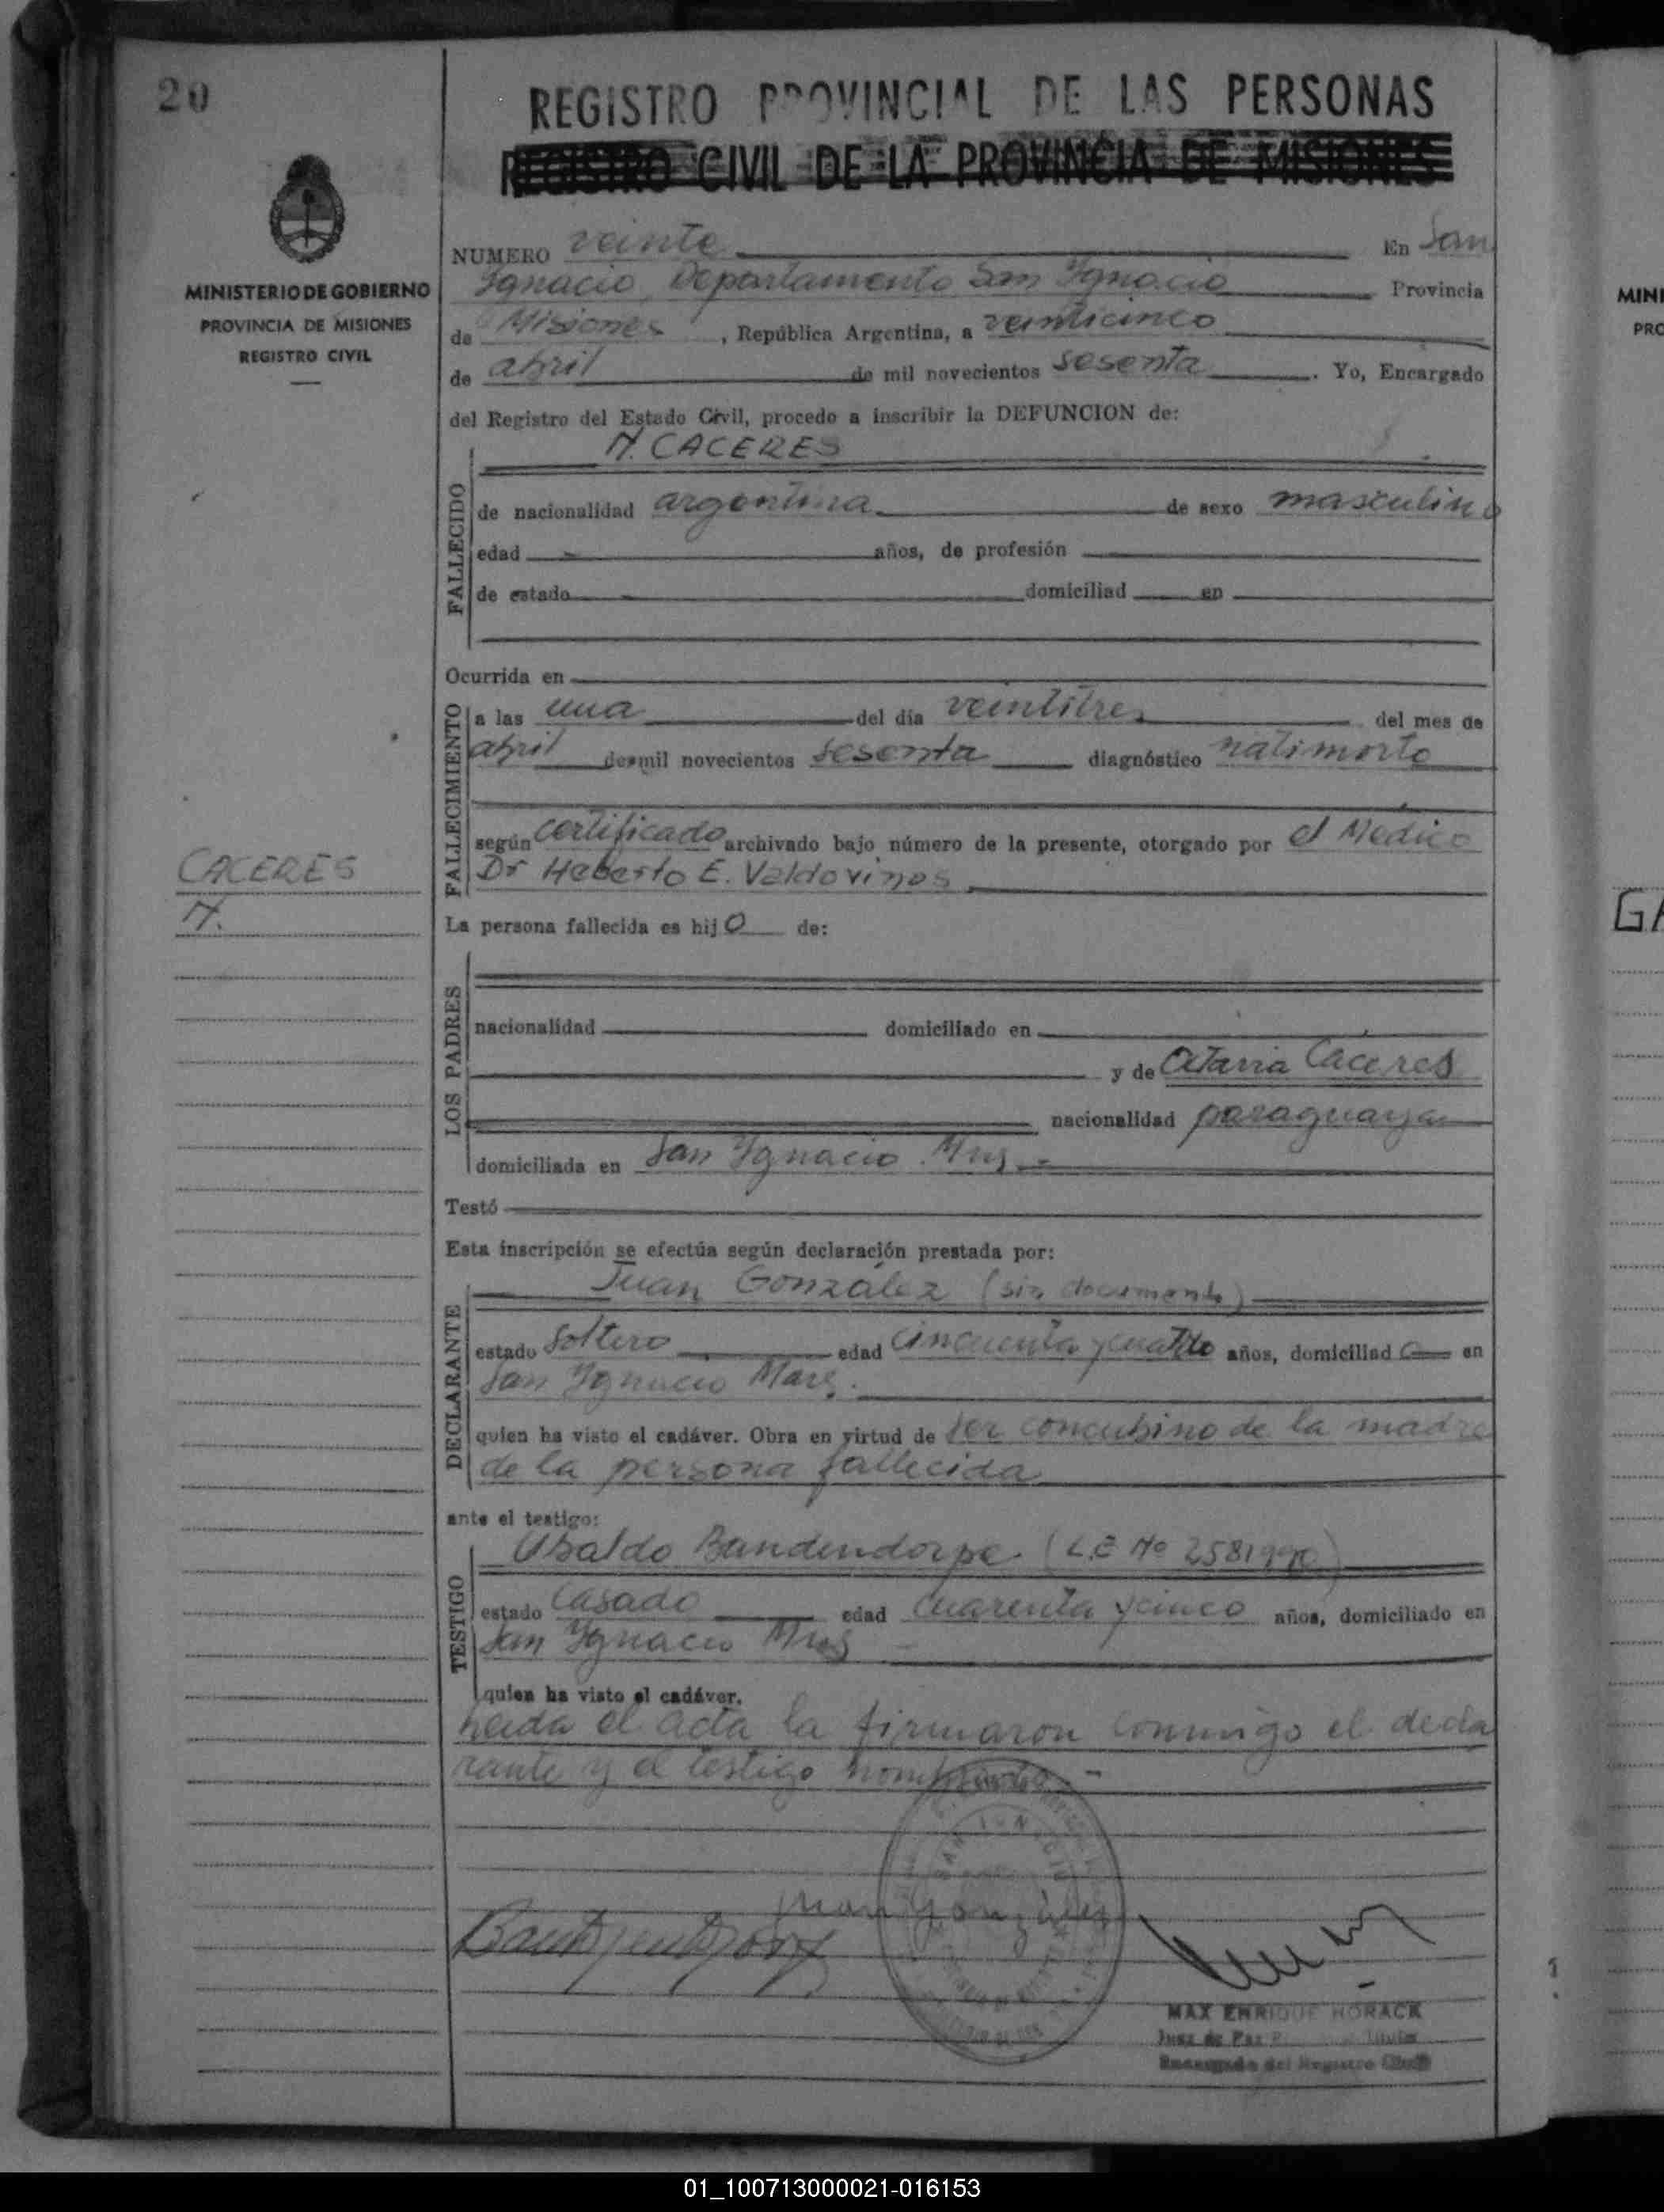 20
REGISTRO PROVINCIAL DE LAS PERSONAS
REGISTRO CIVIL DE LA PROVINCIA DE MISIONES
MINISTERIO DE GOBIERNO
PROVINCIA DE MISIONES
REGISTRO CIVIL
NUMERO veinte En San
Ignacio, Departamento San Ignacio Provincia
de Misiones, República Argentina, a veinticinco
de abril de mil novecientos sesenta. Yo, Encargado
del Registro del Estado Civil, procedo a inscribir la DEFUNCION de:
N. CACERES
FALLECIDO
de nacionalidad argentina de sexo masculino
edad años, de profesión
de estado domiciliad en
Ocurrida en
FALLECIMIENTO
a las una del día veintitres del mes de
abril de mil novecientos sesenta diagnóstico natimorto
según certificado archivado bajo número de la presente, otorgado por el Medico
Dr Heberto E. Valdovinos
CACERES
N.
La persona fallecida es hijo de:
LOS PADRES
nacionalidad domiciliado en
y de Caceres
nacionalidad paraguaya
domiciliada en San Ignacio Mns.-
Testó
Esta inscripción se efectúa según declaración prestada por:
Juan González (sin documento)
DECLARANTE
estado Soltero edad cincuenta y cuatro años, domiciliad o en
San Ignacio
quien ha visto el cadáver. Obra en virtud de ser concubino de la madre
de la persona fallecida
ante el testigo:
Ubaldo Bandendorpe (L.E No 2581990)
TESTIGO
estado Casado edad cuarenta y cinco años, domiciliado en
San Ignacio Mns -
quien ha visto el cadáver.
Leida el acta la firmaron conmigo el decla
rante y el testigo nombrado.-
SAN IGNACIO
Juan González
MAX ENRIQUE HORACK
Juez de Paz Titular
Encargado del Registro Civil
MINI
PRO
GA
01_100713000021-016153